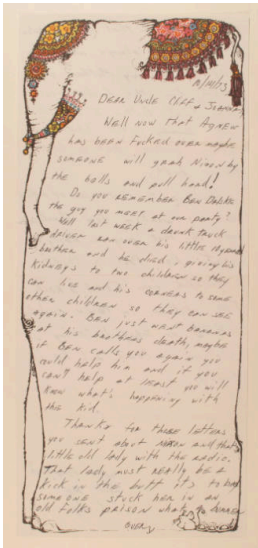 10/10/73
Dear Uncle Cliff &
Well now that Agnew
has been fucked over maybe
someone will grab Nixon by
the balls and pull hard!
Do you remember Ben
the guy you meet at our party?
Well last week a drunk truck
driver ran over his little 10 year old
brother and he died, giving his
kidneys to two children so they
can live and his corners to some
other children so they can see
again. Ben just went bananas
at his brothers death, maybe
if Ben calls you again you
could help him and if you
can't help at least you will
know what's happening with
the kid.
Thanks for those letters
you sent about Nixon and that
little old lady with the radio.
That lady must really be a
kick in the butt it's to bad
someone stuck her in an
old folks prison what a
over